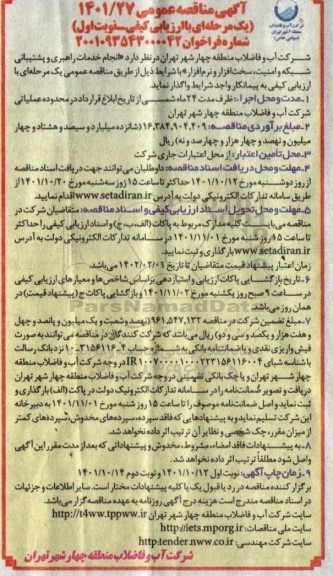 آگهی مناقصه عمومی ۱۴۰۱/۲۷
(یک مرحله‌ای با ارزیابی کیفی_نوبت اول)
شماره فراخوان ۲۰۰۱۰۹۳۵۴۳۰۰۰۰۴۲
شرکت آب و فاضلاب منطقه چهار شهر تهران در نظر دارد «انجام خدمات راهبری و پشتیبانی
شبکه و امنیت، سخت‌افزار و نرم‌افزار» با شرایط ذیل از طریق مناقصه عمومی یک مرحله‌ای با
ارزیابی کیفی به پیمانکار واجد شرایط واگذار نماید.
۱-مدت و محل اجرا: ظرف مدت ۲۴ ماه شمسی از تاریخ ابلاغ قرارداد در محدوده عملیاتی
شرکت آب و فاضلاب منطقه چهار شهر تهران
۲-مبلغ برآوردی مناقصه: ۱۶,۳۸۴,۹۰۴,۴۰۹ (شانزده میلیارد و سیصد و هشتاد و چهار
میلیون و نهصد و چهار هزار و چهارصد و نه) ریال
۳-محل تأمین اعتبار: از محل اعتبارات جاری شرکت
۴-مهلت و محل دریافت اسناد مناقصه: داوطلبان می‌توانند جهت دریافت اسناد مناقصه
از روز دوشنبه مورخ ۱۴۰۱/۱۰/۱۲ حداکثر تا ساعت ۱۵ روز سه‌شنبه مورخ ۱۴۰۱/۱۰/۲۰ از
طریق سامانه تدارکات الکترونیکی دولت به آدرس www.setadiran.ir اقدام نمایند.
۵-مهلت و محل تحویل اسناد ارزیابی کیفی و اسناد مناقصه: متقاضیان شرکت در
مناقصه می‌بایست کلیه مدارک مربوط به پاکات (الف، ب، ج) و اسناد ارزیابی کیفی را حداکثر
تا ساعت ۱۵ روز شنبه مورخ ۱۴۰۱/۱۱/۰۱ در سامانه تدارکات الکترونیکی دولت به آدرس
www.setadiran.ir بارگذاری و ثبت نمایند.
زمان اعتبار پیشنهاد قیمت متقاضیان تا تاریخ ۱۴۰۲/۰۲/۰۱ می‌باشد.
۶-تاریخ بازگشایی پاکات: ارزیابی و امتیازدهی براساس شاخص‌ها و معیارهای ارزیابی کیفی
در ساعت ۹ صبح روز یکشنبه مورخ ۱۴۰۱/۱۱/۰۲ و بازگشایی پاکات ج (پیشنهاد قیمت) در
همان روز می‌باشد.
۷-مبلغ تضمین شرکت در مناقصه ۹۶۱,۵۴۷,۱۳۲ (نهصد و شصت و یک میلیون و پانصد و چهل
و هفت هزار و یکصد و سی و دو) ریال می‌باشد که شرکت‌کنندگان در مناقصه می‌توانند به صورت
فیش واریزی نقدی و یا ضمانتنامه بانکی به شماره حساب نزد بانک رسالت
با شناسه شبای در وجه شرکت آب و فاضلاب منطقه
چهار شهر تهران و یا چک بانکی تضمینی در وجه شرکت آب و فاضلاب منطقه چهار شهر تهران
دریافت و تصویر ضمانت‌نامه را در سامانه تدارکات الکترونیک دولت در پاکت (الف) بارگذاری و
ثبت نماید و اصل ضمانت‌نامه موصوف را تا ساعت ۱۵ روز شنبه مورخ ۱۴۰۱/۱۱/۰۱ به دبیرخانه
این شرکت تسلیم نماید و به پیشنهادهایی که فاقد سپرده، سپرده‌های مخدوش، سپرده‌های کمتر
از میزان مقرر، چک شخصی و نظایر آن ترتیب اثر داده نخواهد شد.
۸-به پیشنهادات فاقد امضاء، مشروط، مخدوش و پیشنهاداتی که بعد از مدت مقرر این آگهی
واصل شود مطلقاً ترتیب اثر داده نخواهد شد.
۹-زمان چاپ آگهی: نوبت اول ۱۴۰۱/۱۰/۱۲ و نوبت دوم ۱۴۰۱/۱۰/۱۴
برگزار کننده مناقصه در رد یا قبول یک یا کلیه پیشنهادات مختار است. سایر اطلاعات و جزئیات
در اسناد مناقصه مندرج است هزینه درج آگهی روزنامه به عهده مناقصه‌گزار می‌باشد.
سایت شرکت آب و فاضلاب منطقه چهار شهر تهران http://t4ww.tppww.ir
سایت ملی مناقصات: http://iets.mporg.ir
سایت شرکت مهندسی: http:tender.nww.co.ir
شرکت آب و فاضلاب منطقه چهار شهر تهران